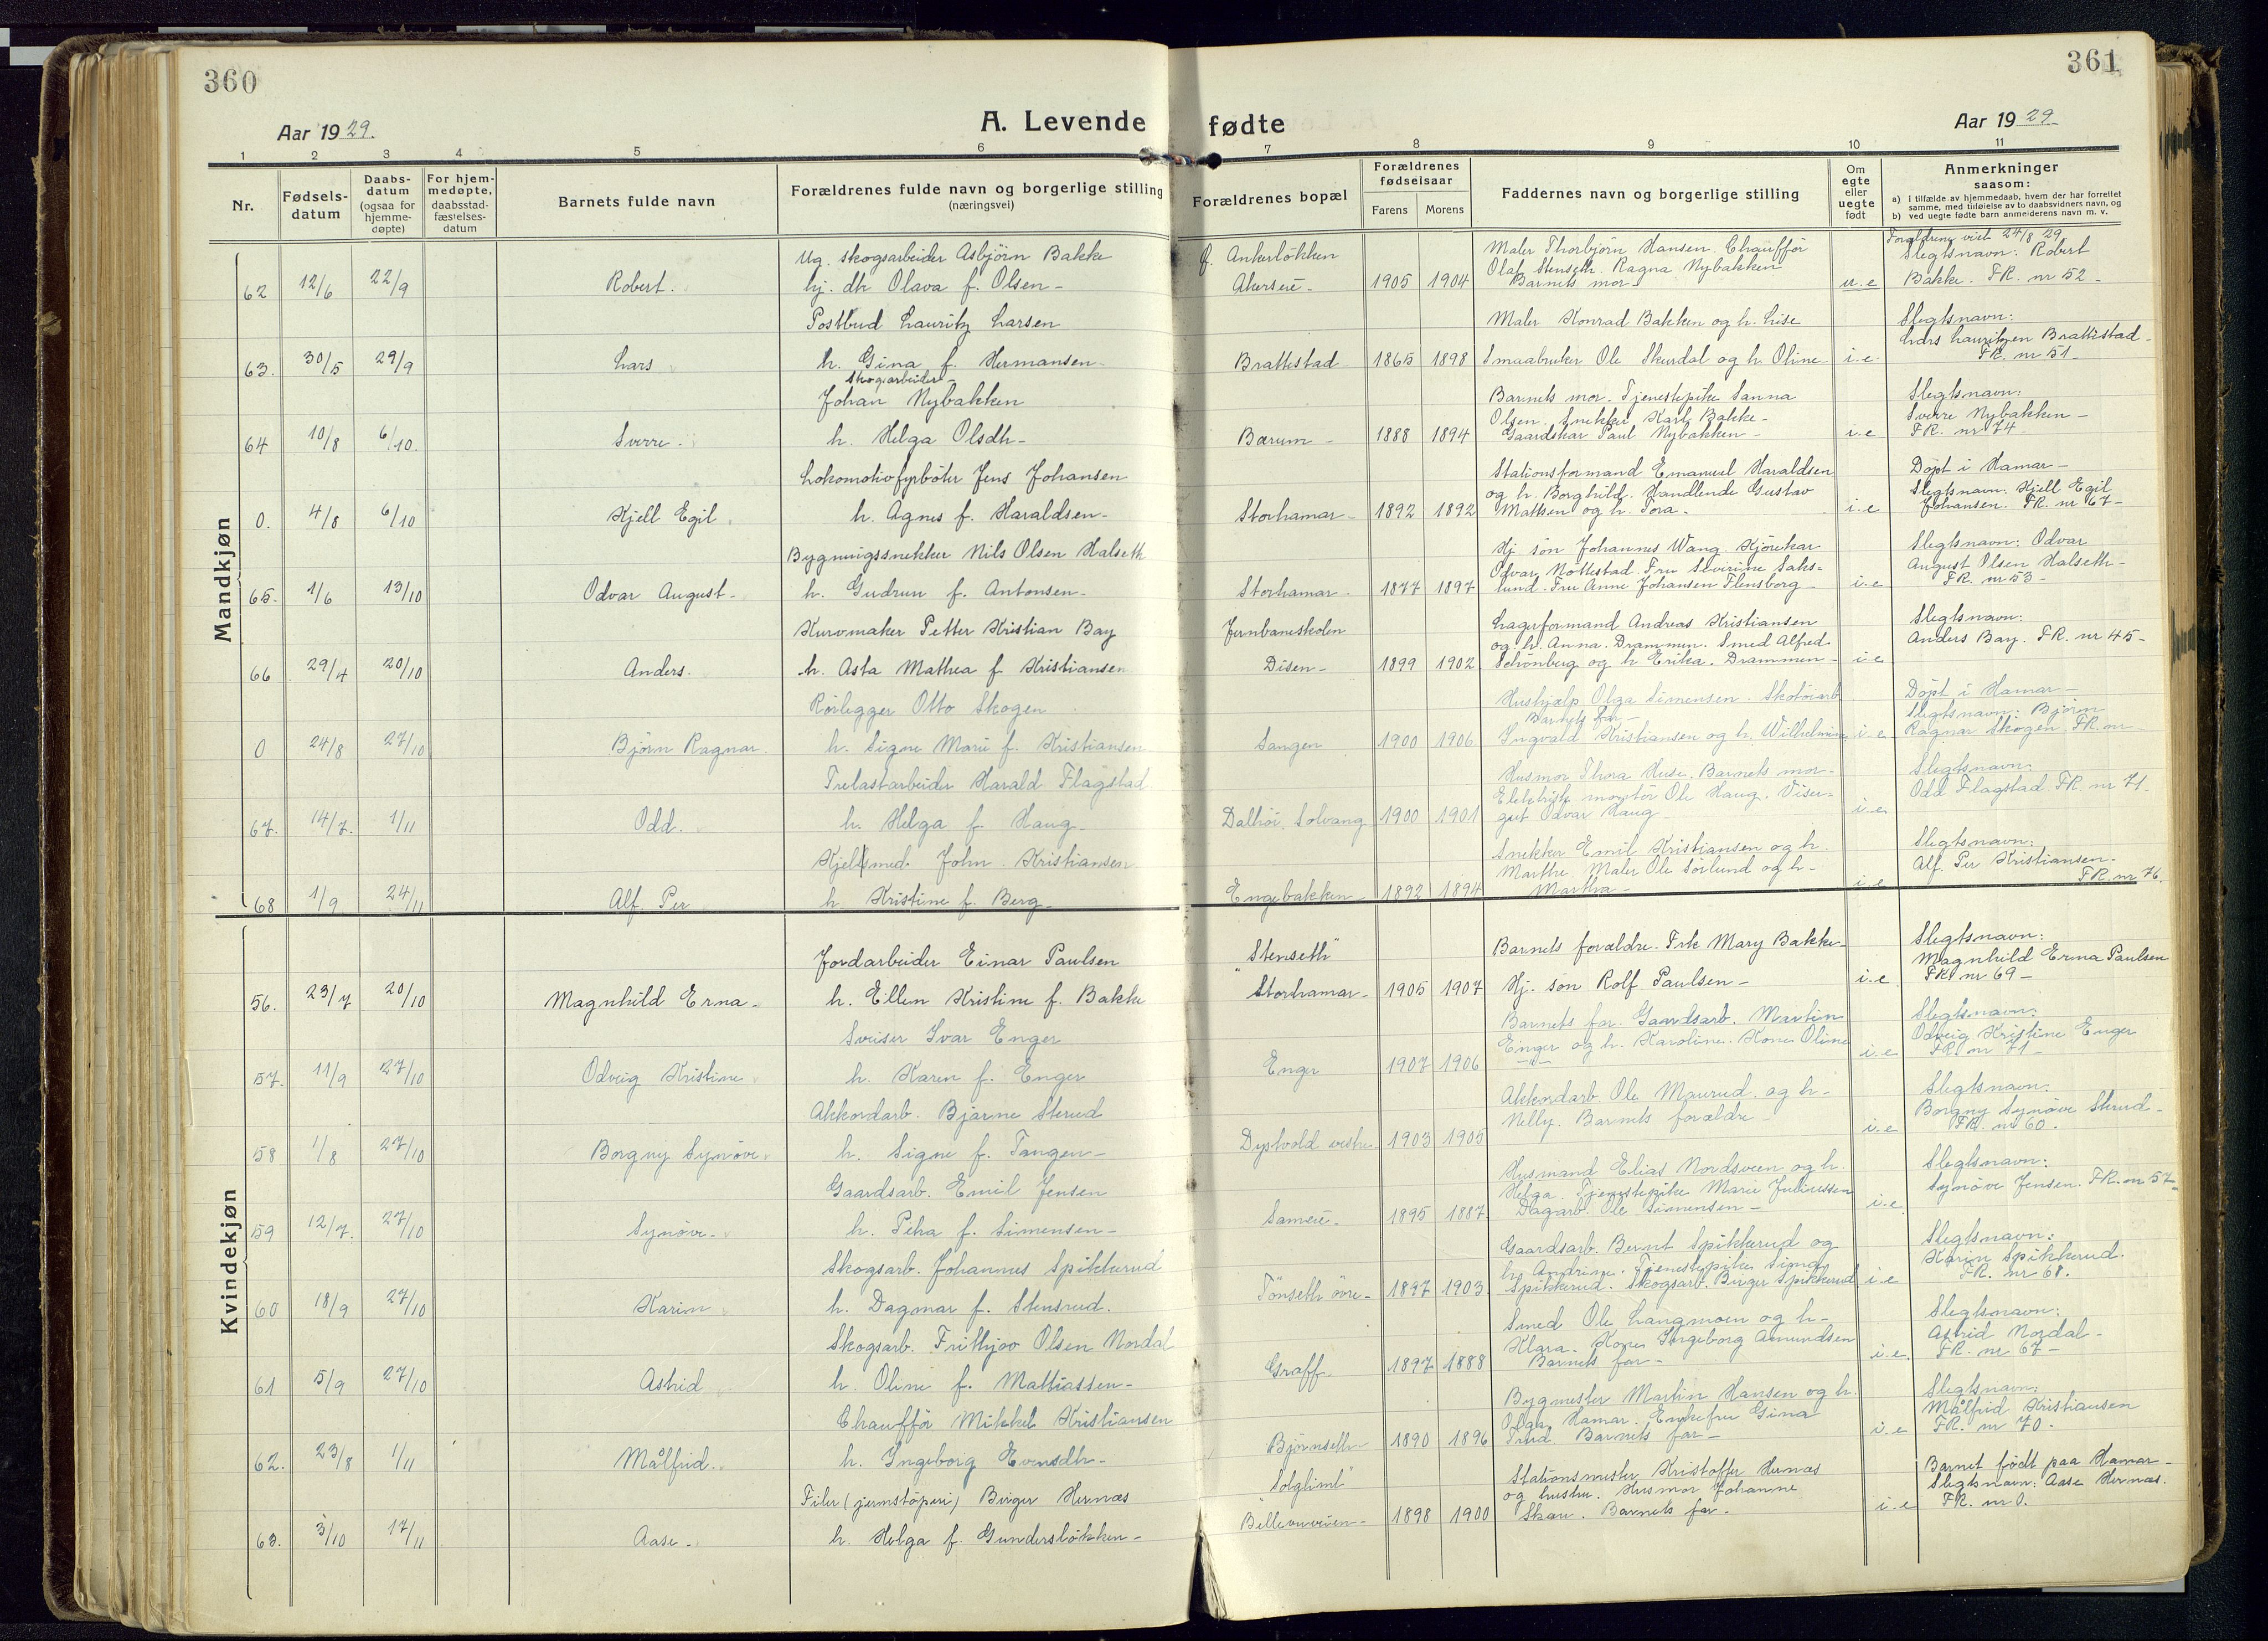 360
361
Aar 1929.
A. Levende fødte
Aar 1929
1 2 3 4 5 6 7 8 9 10 11
Nr.
Fødsels-
datum
Daabs-
datum
(ogsaa for
hjemme-
døpte)
For hjem-
medøpte,
daabsstad-
fæstelses-
datum
Barnets fulde navn
Forældrenes fulde navn og borgerlige stilling
(næringsvei)
Forældrenes bopæl
Forældrenes
fødselsaar
Farens Morens
Faddernes navn og borgerlige stilling
Om
egte
eller
uegte
født
Anmerkninger
saasom:
a) i tilfælde av hjemmedaab, hvem der har forrettet
samme, med tilføielse av to daabsvidners navn, og
b) ved uegte fødte barn anmelderens navn m. v.
Mandkjøn
62 12/6 22/9 Robert.
Ug. skogsarbeider Asbjörn Bakke
hj. dh Olava f. Olsen -
f. Ankerlökken
Akersvei - 1905 1904
Maler Thorbjörn Hansen. Chaufför
Olaf Stenseth. Ragna Nybakken
Barnets mor -
u.e
Forældrene viet 24/8 29.
Slegtsnavn: Robert
Bakke. FR. nr 52 -
63. 30/5 29/9 Lars
Postbud Lauritz Larsen
h. Gina f. Hermansen -
Brattestad 1865 1898
Maler Konrad Bakken og h. Lise
Smaabruker Ole Skurdal og h. Oline
i.e.
Slegtsnavn:
Lars Lauritzen Brattestad -
FR. nr 51 -
64 10/8 6/10. Sverre.
Skogsarbeider -
Johan Nybakken
h. Helga Olsdh -
Bærum - 1888 1894
Barnets mor. Tjenestepike Sanna
Olsen. Snekker Karl Bakke -
Gaardskar Paul Nybakken -
i.e
Slegtsnavn:
Sverre Nybakken -
FR. nr 74
0. 4/8 6/10 Kjell Egil
Lokomotivfyrböter Jens Johansen
h. Agnes f. Haraldsen -
Storhamar - 1892 1892
Stationsformand Emanuel Haraldsen
og h. Borghild. Handlende Gustav
Mattsen og h. Tora -
i.e
Döpt i Hamar -
Slegtsnavn: Kjell Egil
Johansen. FR. nr 67 -
65. 1/6 13/10 Odvar August -
Bygningssnekker Nils Olsen Halseth
h. Gudrun f. Antonsen -
Storhamar - 1877 1897
Hj. sön Johannes Wang. Kjörekar
Odvar Nottestad. Fru Severine Saks-
lund. Fru Anne Johansen Flensborg -
i.e
Slegtsnavn: Odvar
August Olsen Halseth -
FR. nr 53 -
66 29/4 20/10 Anders.
Kurvmaker Petter Kristian Bay
h. Asta Mathea f. Kristiansen
Jernbaneskolen
Disen - 1899 1902
Lagerformand Andreas Kristiansen
og h. Anna. Drammen. Smed Alfred
Schönberg og h. Erika. Drammen -
i.e
Slegtsnavn:
Anders Bay. FR. nr 45 -
0 24/8 27/10 Björn Ragnar.
Rörlegger Otto Skogen
h. Signe Marie f. Kristiansen
Sangen 1900 1906
Hushjælp Olga Simensen. Skotöiarb
Barnets far -
Ingvald Kristiansen og h. Wilhelmine
i.e
Döpt i Hamar -
Slegtsnavn: Björn
Ragnar Skogen. FR. nr -
67. 14/7. 1/11 Odd.
Trelastarbeider Harald Flagstad
h. Helga f. Haug -
Dalhöi, Solvang 1900 1901
Husmor Thora Huse. Barnets mor -
Elektrisk montör Ole Haug. Viser-
gut Odvar Haug -
i.e.
Slegtsnavn:
Odd Flagstad. FR. nr 71.
68 1/9 24/11 Alf. Per
Kjelsmed. John. Kristiansen
h. Kristine f. Berg -
Engebakken - 1892 1894
Snekker Emil Kristiansen og h.
Marthe. Maler Ole Sörlund og h -
Martha -
i.e
Slegtsnavn:
Alf. Per Kristiansen.
FR. nr 76.
Kvindekjøn
56. 23/7 20/10 Magnhild Erna -
Jordarbeider Einar Paulsen
h. Ellen Kristine f. Bakke
"Stenseth"
Storhamar - 1905 1907
Barnets forældre. Frk Mary Bakke -
Hj. sön Rolf Paulsen -
i.e
Slegtsnavn:
Magnhild Erna Paulsen
FR. nr 69 -
57. 11/9 27/10 Odveig Kristine
Sveiser Ivar Enger
h. Karen f. Enger
Enger 1907 1906
Barnets far. Gaardsarb. Martin
Enger og h. Karoline. Kone Oline
- " -
i.e
Slegtsnavn:
Odveig Kristine Enger
FR. nr 71 -
58 1/8 27/10 Borgny Synöve.
Akkordarb. Bjarne Skrud
h. Signe f. Tangen -
Dystvold vestre 1903 1905
Akkordarb. Ole Maurud. og h -
Nelly. Barnets forældre -
i.e
Slegtsnavn:
Borgny Synöve Skrud -
FR. nr 60.
59 12/7. 27/10 Synöve.
Gaardsarb. Emil Jensen
h. Petra f. Simensen -
1895 1887
Husmand Elias Nordsveen og h.
Helga. Tjenestepike Marie Juliussen
Dagarb. Ole Simensen -
i.e
Slegtsnavn:
Synöve Jensen. FR. nr 57 -
60 18/9 27/10 Karin
Skogsarb. Johannes Spikkerud
h. Dagmar f. Stensrud.
Tönseth övre - 1897 1903
Gaardsarb. Bernt Spikkerud og
h. Andrine. Tjenestepike Signe
Spikkerud. Skogsarb. Birger Spikkerud
i.e
Slegtsnavn:
Karin Spikkerud.
FR. nr 68.
61 5/9 27/10 Astrid
Skogsarb. Frithjov Olsen Nordal
h. Oline f. Mattiassen -
Graff. 1897 1888
Smed Ole Langmoen og h -
Klara. Kone Ingeborg Amundsen
Barnets far -
i.e.
Slegtsnavn:
Astrid Nordal -
FR. nr 67 -
62. 23/8 1/11 Målfrid.
Chaufför Mikkel Kristiansen
h. Ingeborg Evensdh -
Björnseth - 1890 1896
Bygmester Martin Hansen og h.
Olga, Hamar. Enkefru Gina
Trud. Barnets far -
i.e
Slegtsnavn:
Målfrid Kristiansen
FR. nr 70.
63. 3/10 17/11 Aase -
Filer (jernstöperi) Birger Hernæs
h. Helga f. Gunderslökken -
"Solglimt"
Bellevueveien - 1898 1900
Stationsmester Kristoffer Hernæs
og hustru. Husmor Johanne
Skau. Barnets far -
i.e
Barnet födt paa Hamar -
Slegtsnavn: Aase Hernæs.
FR. nr 0.